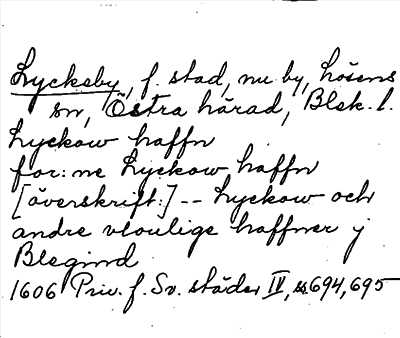 Lyckeby, f. stad, nu by, Lösens
sn, Östra härad, Blek. l.
Lyckow haffn
for: ne Lyckow haffn
[överskrift:] -- Lyckow och
andre vloulige haffner j
Blegind
1606 Priv. f. Sv. städer IV, ss 694, 695